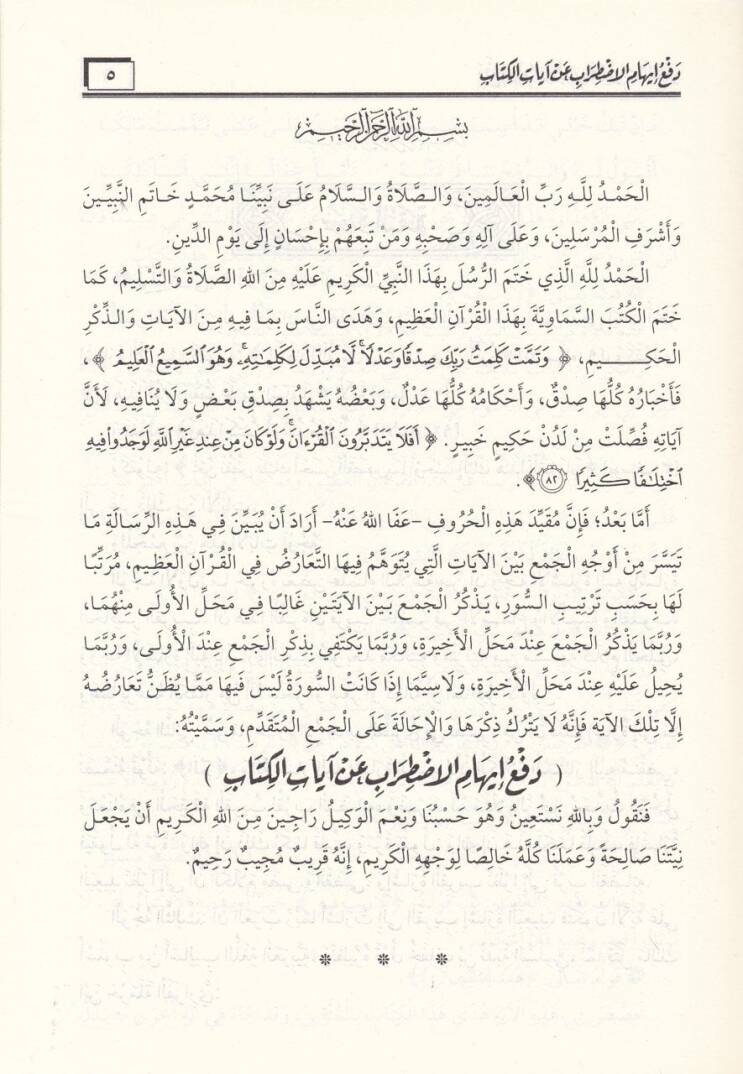 دَفْعُ إِيهَامِ الاضْطِرَابِ عَنْ آيَاتِ الكِتَابِ
٥
بِسْمِ اللَّهِ الرَّحْمَنِ الرَّحِيمِ
الْحَمْدُ لِلَّهِ رَبِّ الْعَالَمِينَ، وَالصَّلَاةُ وَالسَّلَامُ عَلَى نَبِيِّنَا مُحَمَّدٍ خَاتَمِ النَّبِيِّينَ
وَأَشْرَفِ الْمُرْسَلِينَ، وَعَلَى آلِهِ وَصَحْبِهِ وَمَنْ تَبِعَهُمْ بِإِحْسَانٍ إِلَى يَوْمِ الدِّينِ.
الْحَمْدُ لِلَّهِ الَّذِي خَتَمَ الرُّسُلَ بِهَذَا النَّبِيِّ الْكَرِيمِ عَلَيْهِ مِنَ اللهِ الصَّلَاةُ وَالتَّسْلِيمُ، كَمَا
خَتَمَ الْكُتُبَ السَّمَاوِيَّةَ بِهَذَا الْقُرْآنِ الْعَظِيمِ، وَهَدَى النَّاسَ بِمَا فِيهِ مِنَ الْآيَاتِ وَالذِّكْرِ
الْحَكِيمِ، ﴿ وَتَمَّتْ كَلِمَتُ رَبِّكَ صِدْقًا وَعَدْلًا ۚ لَا مُبَدِّلَ لِكَلِمَاتِهِ ۚ وَهُوَ السَّمِيعُ الْعَلِيمُ ﴾،
فَأَخْبَارُهُ كُلُّهَا صِدْقٌ، وَأَحْكَامُهُ كُلُّهَا عَدْلٌ، وَبَعْضُهُ يَشْهَدُ بِصِدْقِ بَعْضٍ وَلَا يُنَافِيهِ، لَأَنَّ
آيَاتِهِ فُصِّلَتْ مِنْ لَدُنْ حَكِيمٍ خَبِيرٍ. ﴿ أَفَلَا يَتَدَبَّرُونَ الْقُرْءَانَ ۚ وَلَوْ كَانَ مِنْ عِندِ غَيْرِ اللَّهِ لَوَجَدُوا۟ فِيهِ
ٱخْتِلَٰفًا كَثِيرًا ٨٢ ﴾.
أَمَّا بَعْدُ؛ فَإِنَّ مُقَيِّدَ هَذِهِ الْحُرُوفِ -عَفَا اللهُ عَنْهُ- أَرَادَ أَنْ يُبَيِّنَ فِي هَذِهِ الرِّسَالَةِ مَا
تَيَسَّرَ مِنْ أَوْجُهِ الْجَمْعِ بَيْنَ الْآيَاتِ الَّتِي يُتَوَهَّمُ فِيهَا التَّعَارُضُ فِي الْقُرْآنِ الْعَظِيمِ، مُرَتِّبًا
لَهَا بِحَسَبِ تَرْتِيبِ السُّوَرِ، يَذْكُرُ الْجَمْعَ بَيْنَ الْآيَتَيْنِ غَالِبًا فِي مَحَلِّ الْأُولَى مِنْهُمَا،
وَرُبَّمَا يَذْكُرُ الْجَمْعَ عِنْدَ مَحَلِّ الْأَخِيرَةِ، وَرُبَّمَا يَكْتَفِي بِذِكْرِ الْجَمْعِ عِنْدَ الْأُولَى، وَرُبَّمَا
يُحِيلُ عَلَيْهِ عِنْدَ مَحَلِّ الْأَخِيرَةِ، وَلَاسِيَّمَا إِذَا كَانَتْ السُّورَةُ لَيْسَ فِيهَا مَمَّا يُظَنُّ تَعَارُضُهُ
إِلَّا تِلْكَ الْآيَةَ فَإِنَّهُ لَا يَتْرُكُ ذِكْرَهَا وَالْإِحَالَةَ عَلَى الْجَمْعِ الْمُتَقَدِّمِ، وَسَمَّيْتُهُ:
( دَفْعُ إِيهَامِ الاضْطِرَابِ عَنْ آيَاتِ الكِتَابِ )
فَنَقُولُ وَبِاللهِ نَسْتَعِينُ وَهُوَ حَسْبُنَا وَنِعْمَ الْوَكِيلُ رَاجِينَ مِنَ اللهِ الْكَرِيمِ أَنْ يَجْعَلَ
نِيَّتَنَا صَالِحَةً وَعَمَلَنَا كُلَّهُ خَالِصًا لِوَجْهِهِ الْكَرِيمِ، إِنَّهُ قَرِيبٌ مُجِيبٌ رَحِيمٌ.
* * *